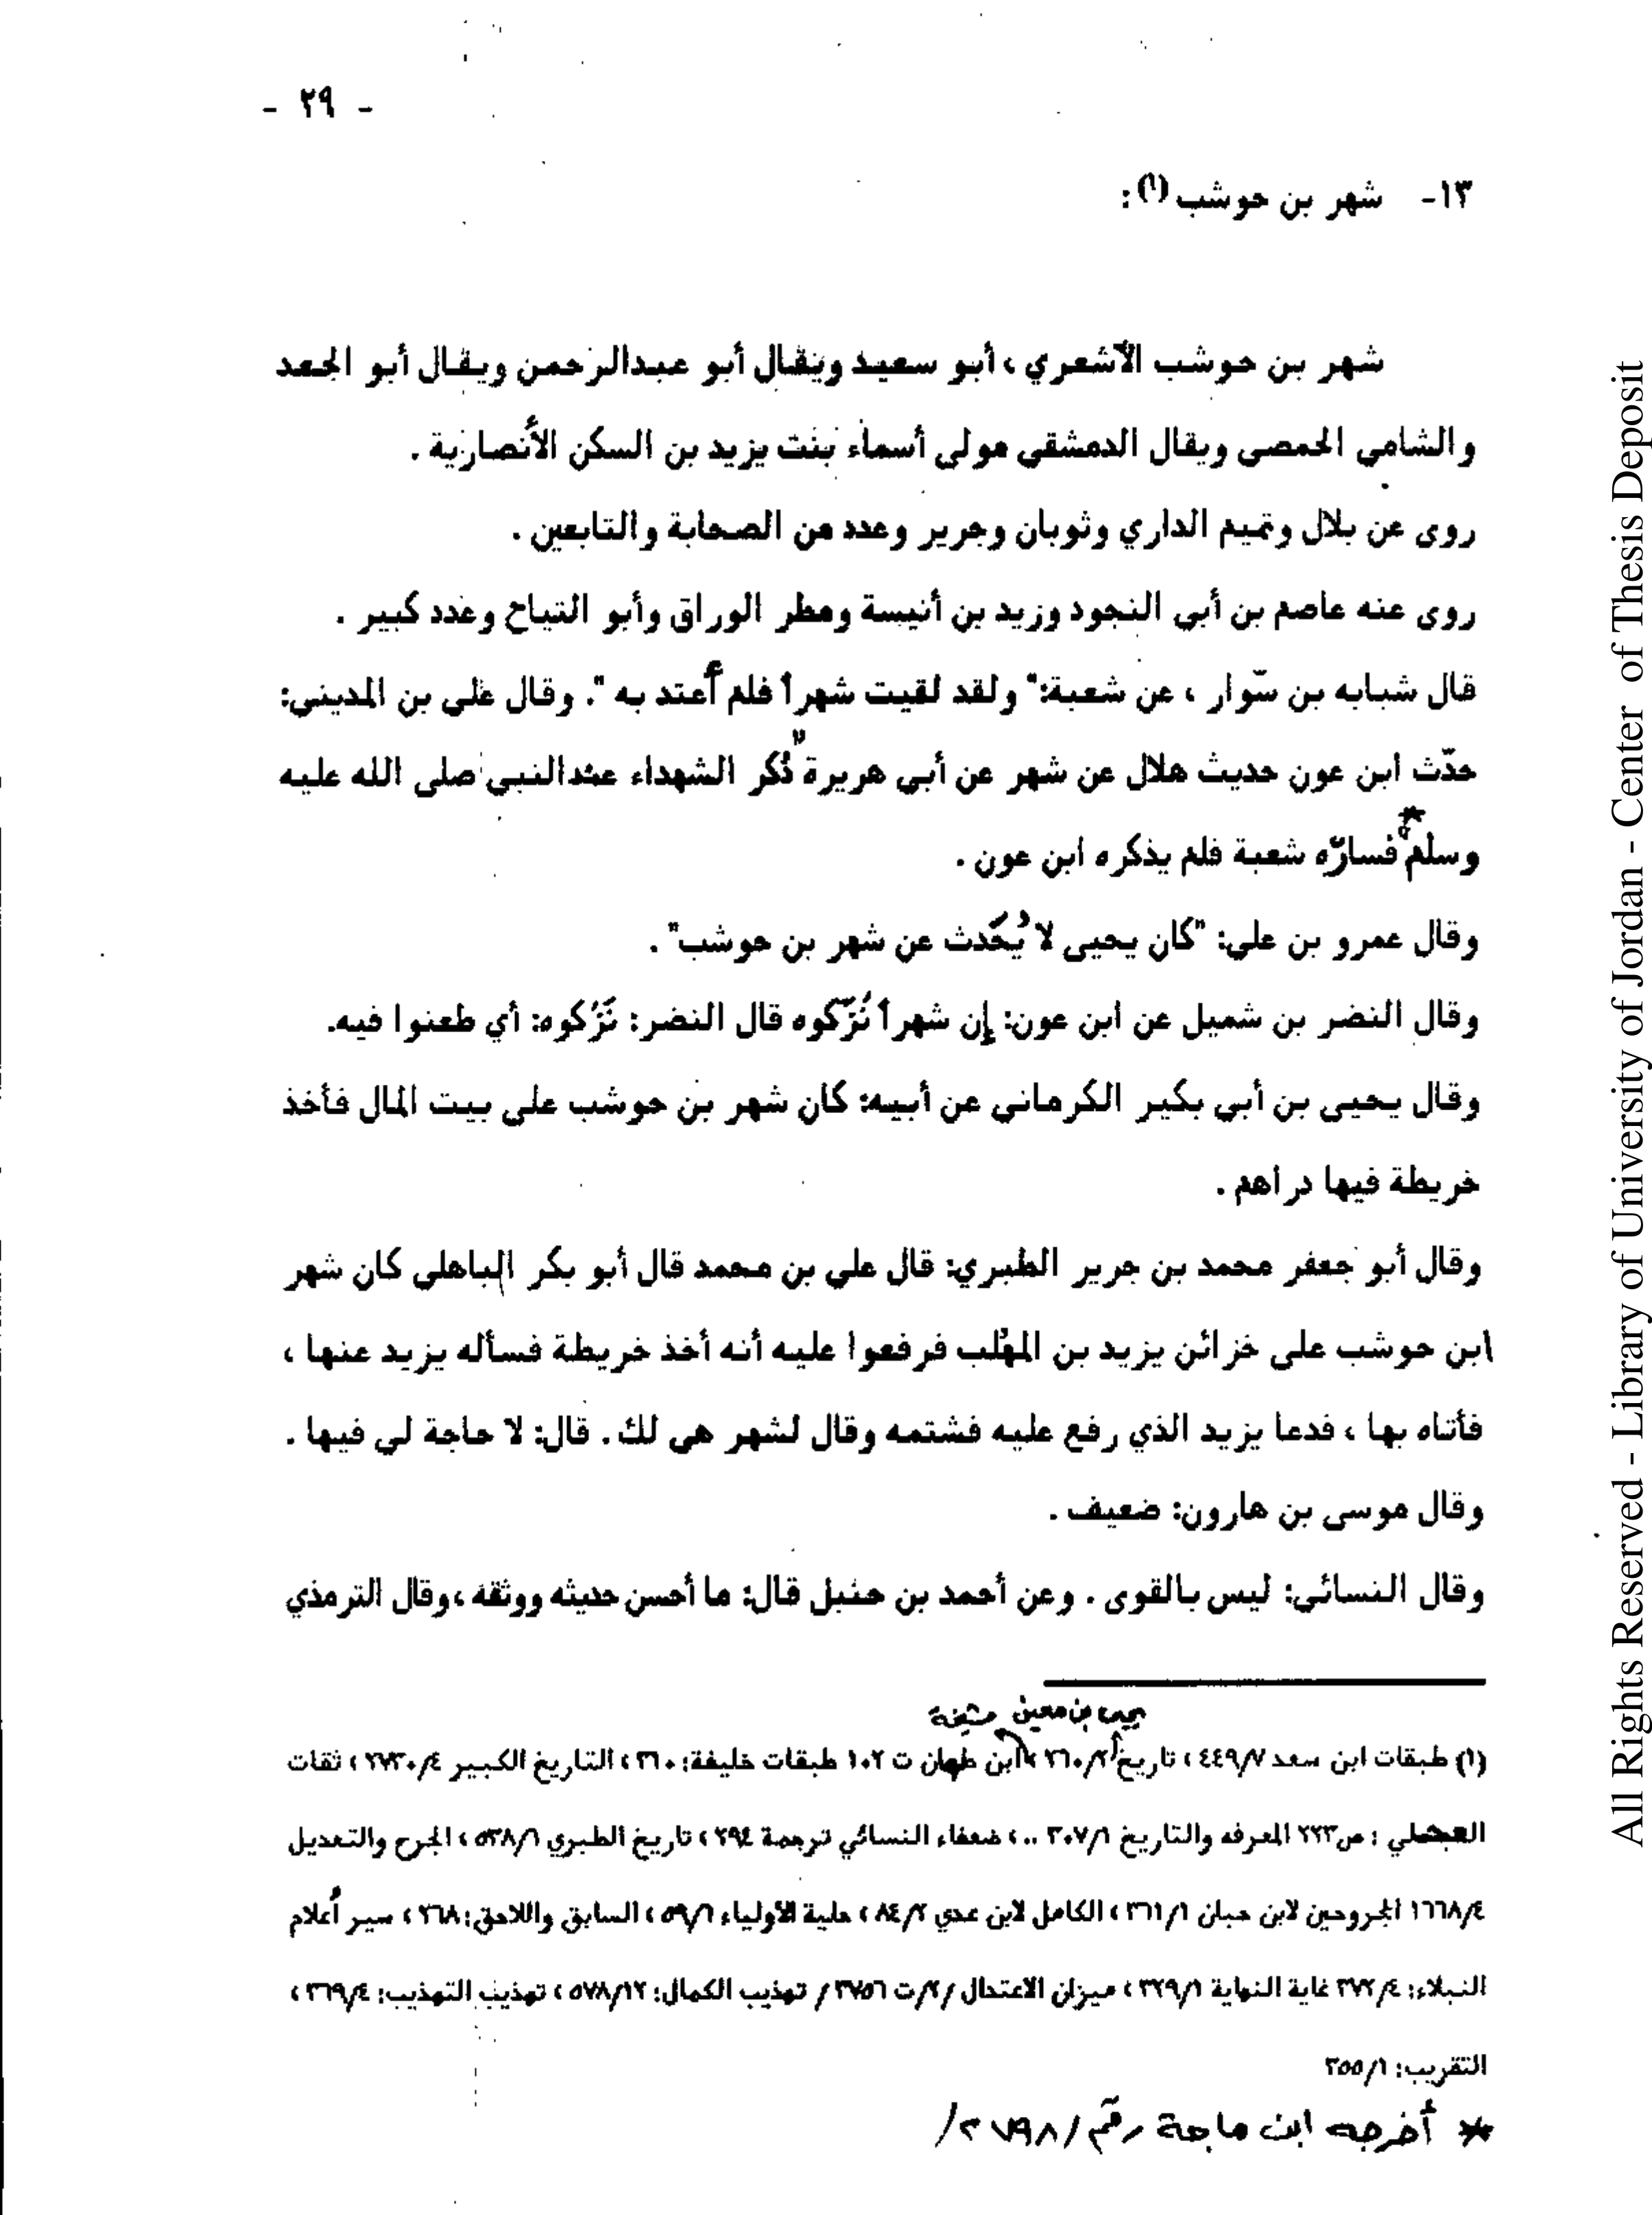 - ٢٩ -
١٣- شهر بن حوشب (١):
شهر بن حوشب الأشعري ، أبو سعيد ويقال أبو عبدالرحمن ويقال أبو الجعد
والشامي الحمصي ويقال الدمشقي مولى أسماء بنت يزيد بن السكن الأنصارية .
روى عن بلال وتميم الداري وثوبان وجرير وعدد من الصحابة والتابعين .
روى عنه عاصم بن أبي النجود وزيد بن أنيسة ومطر الوراق وأبو التياح وعدد كبير .
قال شبابه بن سّوار ، عن شعبة:" ولقد لقيت شهراً فلم أعتد به ". وقال علي بن المديني:
حدّث ابن عون حديث هلال عن شهر عن أبي هريرة "ذُكر الشهداء عندالنبي صلى الله عليه
وسلم"* فسارّه شعبة فلم يذكره ابن عون .
وقال عمرو بن علي: "كان يحيى لا يُحَدث عن شهر بن حوشب" .
وقال النضر بن شميل عن ابن عون: إن شهراً نُزّكوه قال النضر: نَزَكوه: أي طعنوا فيه.
وقال يحيى بن أبي بكير الكرماني عن أبيه: كان شهر بن حوشب على بيت المال فأخذ
خريطة فيها دراهم .
وقال أبو جعفر محمد بن جرير الطبري: قال علي بن محمد قال أبو بكر الباهلي كان شهر
ابن حوشب على خزائن يزيد بن المهُلب فرفعوا عليه أنه أخذ خريطة فسأله يزيد عنها ،
فأتاه بها ، فدعا يزيد الذي رفع عليه فشتمه وقال لشهر هي لك . قال: لا حاجة لي فيها .
وقال موسى بن هارون: ضعيف .
وقال النسائي: ليس بالقوى . وعن أحمد بن حنبل قال: ما أحسن حديثه ووثقه ،وقال الترمذي
يحيى بن معين
(١) طبقات ابن سعد ٤٤٩/٧ ، تاريخ ٢٦٠/٢ ، ابن طهان ت ١٠٢ طبقات خليفة: ٣٦٠ ، التاريخ الكبير ٢٧٣٠/٤ ، ثقات
العجلي : ص٢٢٣ المعرفه والتاريخ ٣٠٧/١ .. ، ضعفاء النسائي ترجمة ٢٩٤ ، تاريخ الطبري ٥٣٨/٦ ، الجرح والتعديل
١٦٦٨/٤ المجروحين لابن حبان ٣٦١/١ ، الكامل لابن عدي ٨٤/٢ ، حلية الأولياء ٥٩/٦ ، السابق واللاحق: ٢٦٨ ، سير أعلام
النبلاء: ٣٧٢/٤ غاية النهاية ٣٢٩/١ ، ميزان الاعتدال /٢/ت ٣٧٥٦ / تهذيب الكمال: ٥٧٨/١٢ ، تهذيب التهذيب: ٣٦٩/٤ ،
التقريب: ٣٥٥/١
* أخرجه ابن ماجة رقم /٢٧٩٨/
All Rights Reserved - Library of University of Jordan - Center of Thesis Deposit